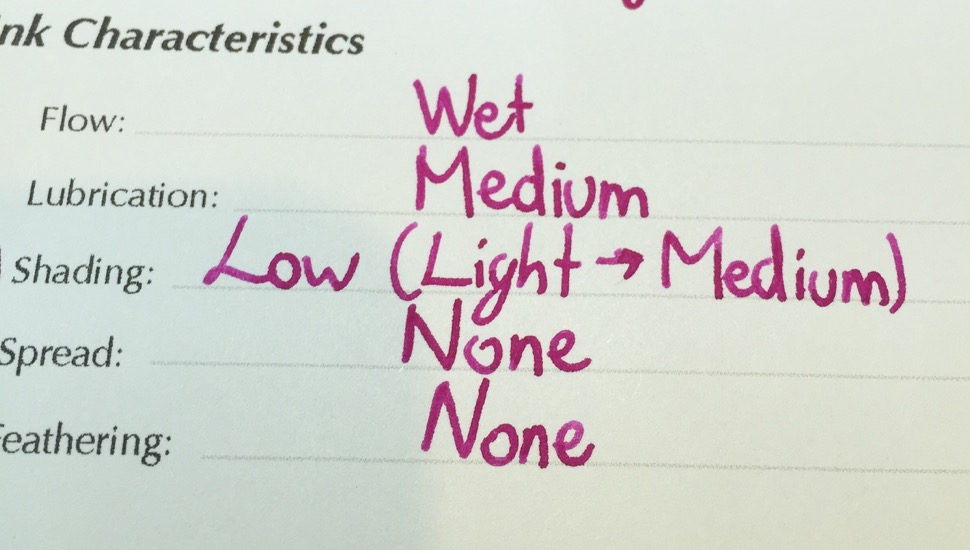 nk Characteristics
Flow: Wet
Lubrication: Medium
Shading: Low (Light → Medium)
Spread: None
eathering: None